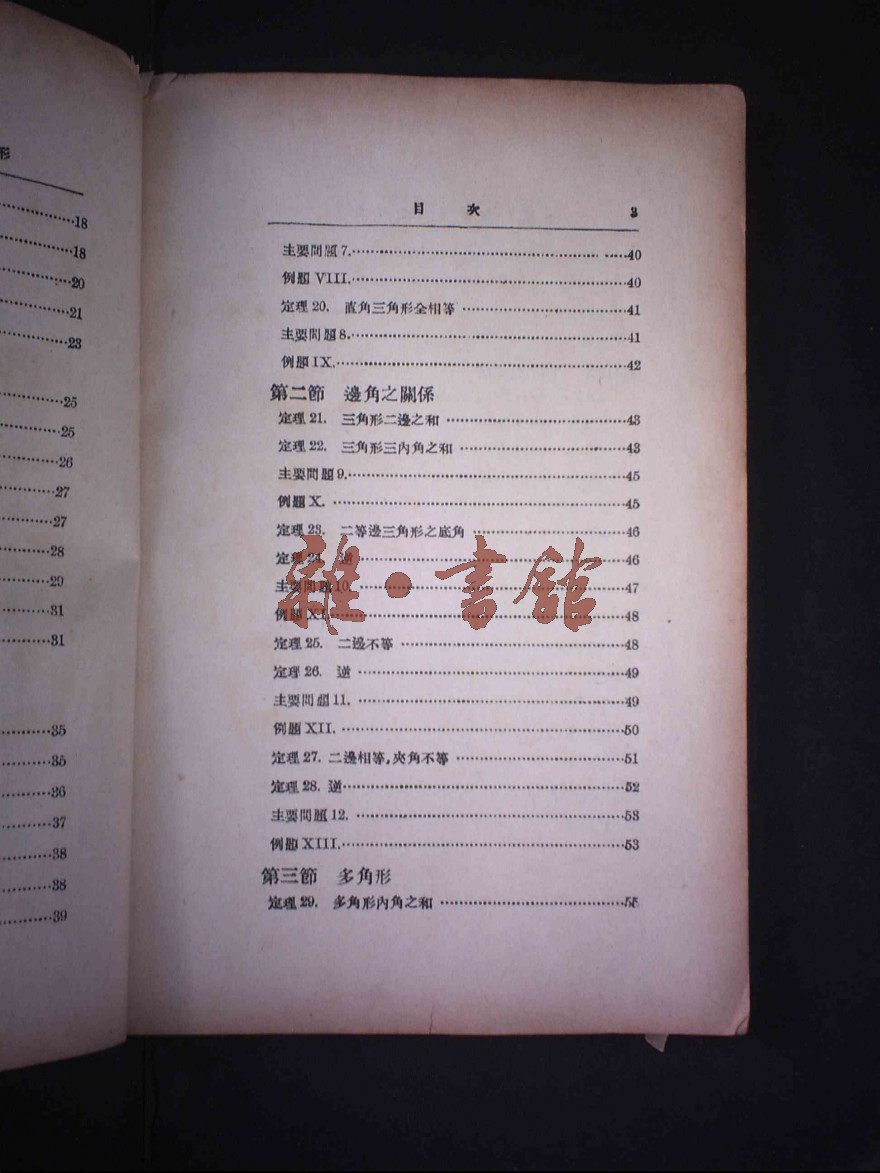 形
18
18
20
21
23
25
25
26
27
27
28
29
31
31
35
35
36
37
38
38
39
目 次 3
主要問題7.……40
例題 VIII.……40
定理20. 直角三角形全相等……41
主要問題8.……41
例題IX.……42
第二節 邊角之關係
定理21. 三角形二邊之和……43
定理22. 三角形三內角之和……43
主要問題9.……45
例題X.……45
定理23. 二等邊三角形之底角……46
定理24. 逆……46
主要問題10.……47
例題XI.……48
定理25. 二邊不等……48
定理26. 逆……49
主要問題11.……49
例題XII.……50
定理27. 二邊相等,夾角不等……51
定理28. 逆……52
主要問題12.……53
例題XIII.……53
第三節 多角形
定理29. 多角形內角之和……55
雜·書館